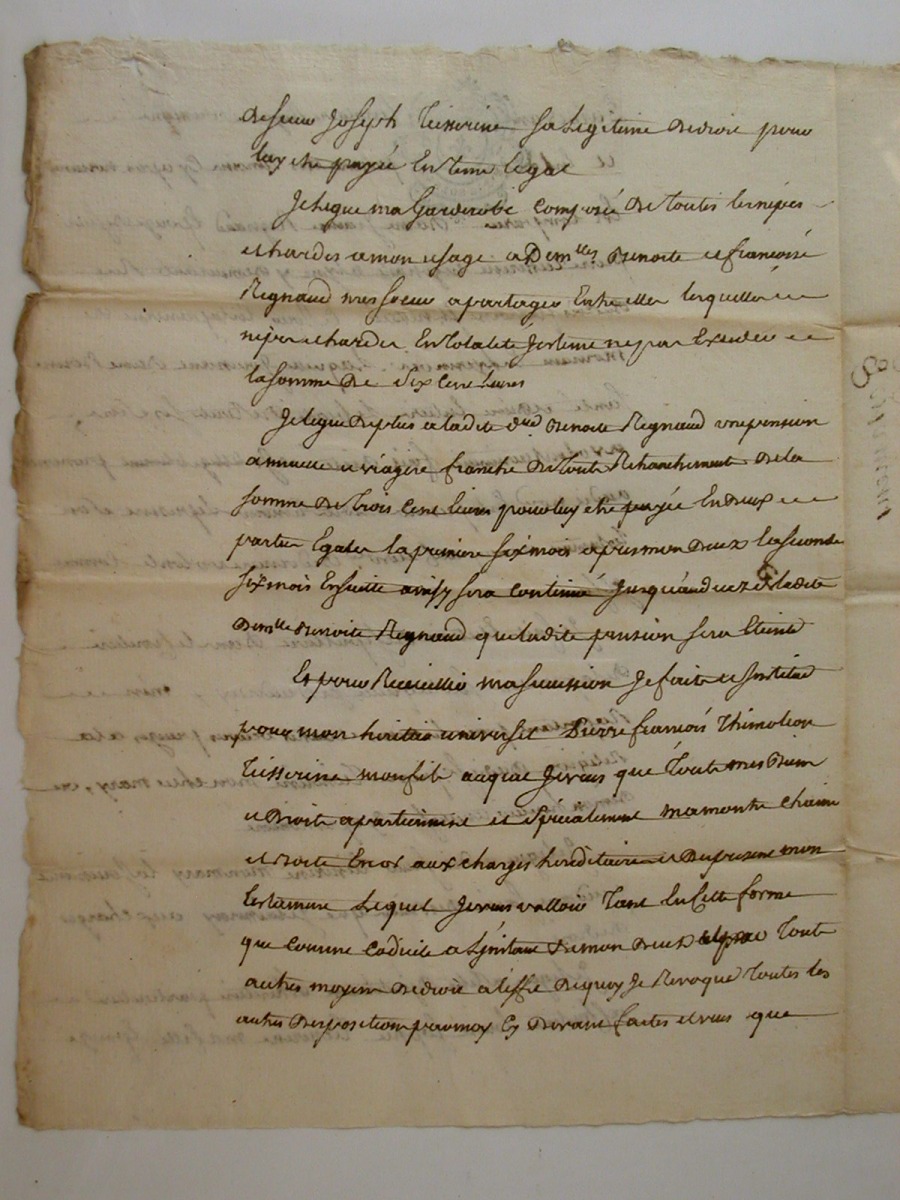 de sieur Joseph Teisserine sa Legitime de droit pour
luy etre payée En terme legal
Je legue ma Garderobe composée de toutes les nipes
et hardes a mon usage a Dem.lles Benoite et francoise
Regnaud mes soeur a partager Entre elles lesquelles
nipes et hardes En totalité Jestime ne pas Exceder
la somme de Six cent livres
Je legue de plus a ladite d.lle Benoite Regnaud une pension
annuelle et viagere franche de toute Retranchement de la
somme de trois cent livres pour luy etre payée En deux
parties Egales la premiere six mois apres mon decez la seconde
six mois Ensuitte ainssy sera continué Jusqu'au decez de ladite
Dem.lle Benoite Regnaud que ladite pension sera Eteinte
Et pour Recueillir ma succession Je fait et Institue
pour mon heritier universel Pierre francois Thimoleon
Teisserine mon fils auquel Je veus que toute mes Biens
et Droits apartiennent et spécialement ma montre chaine
et boite En or aux charges hereditaires et du present mon
testament Lequel Je veus valloir tant En Cette forme
que comme codicile a mon decez toute
autres moyen de droit a l'effet de quoy Je Revoque toutes les
autres disposition par moy Cy devant faites et veus que